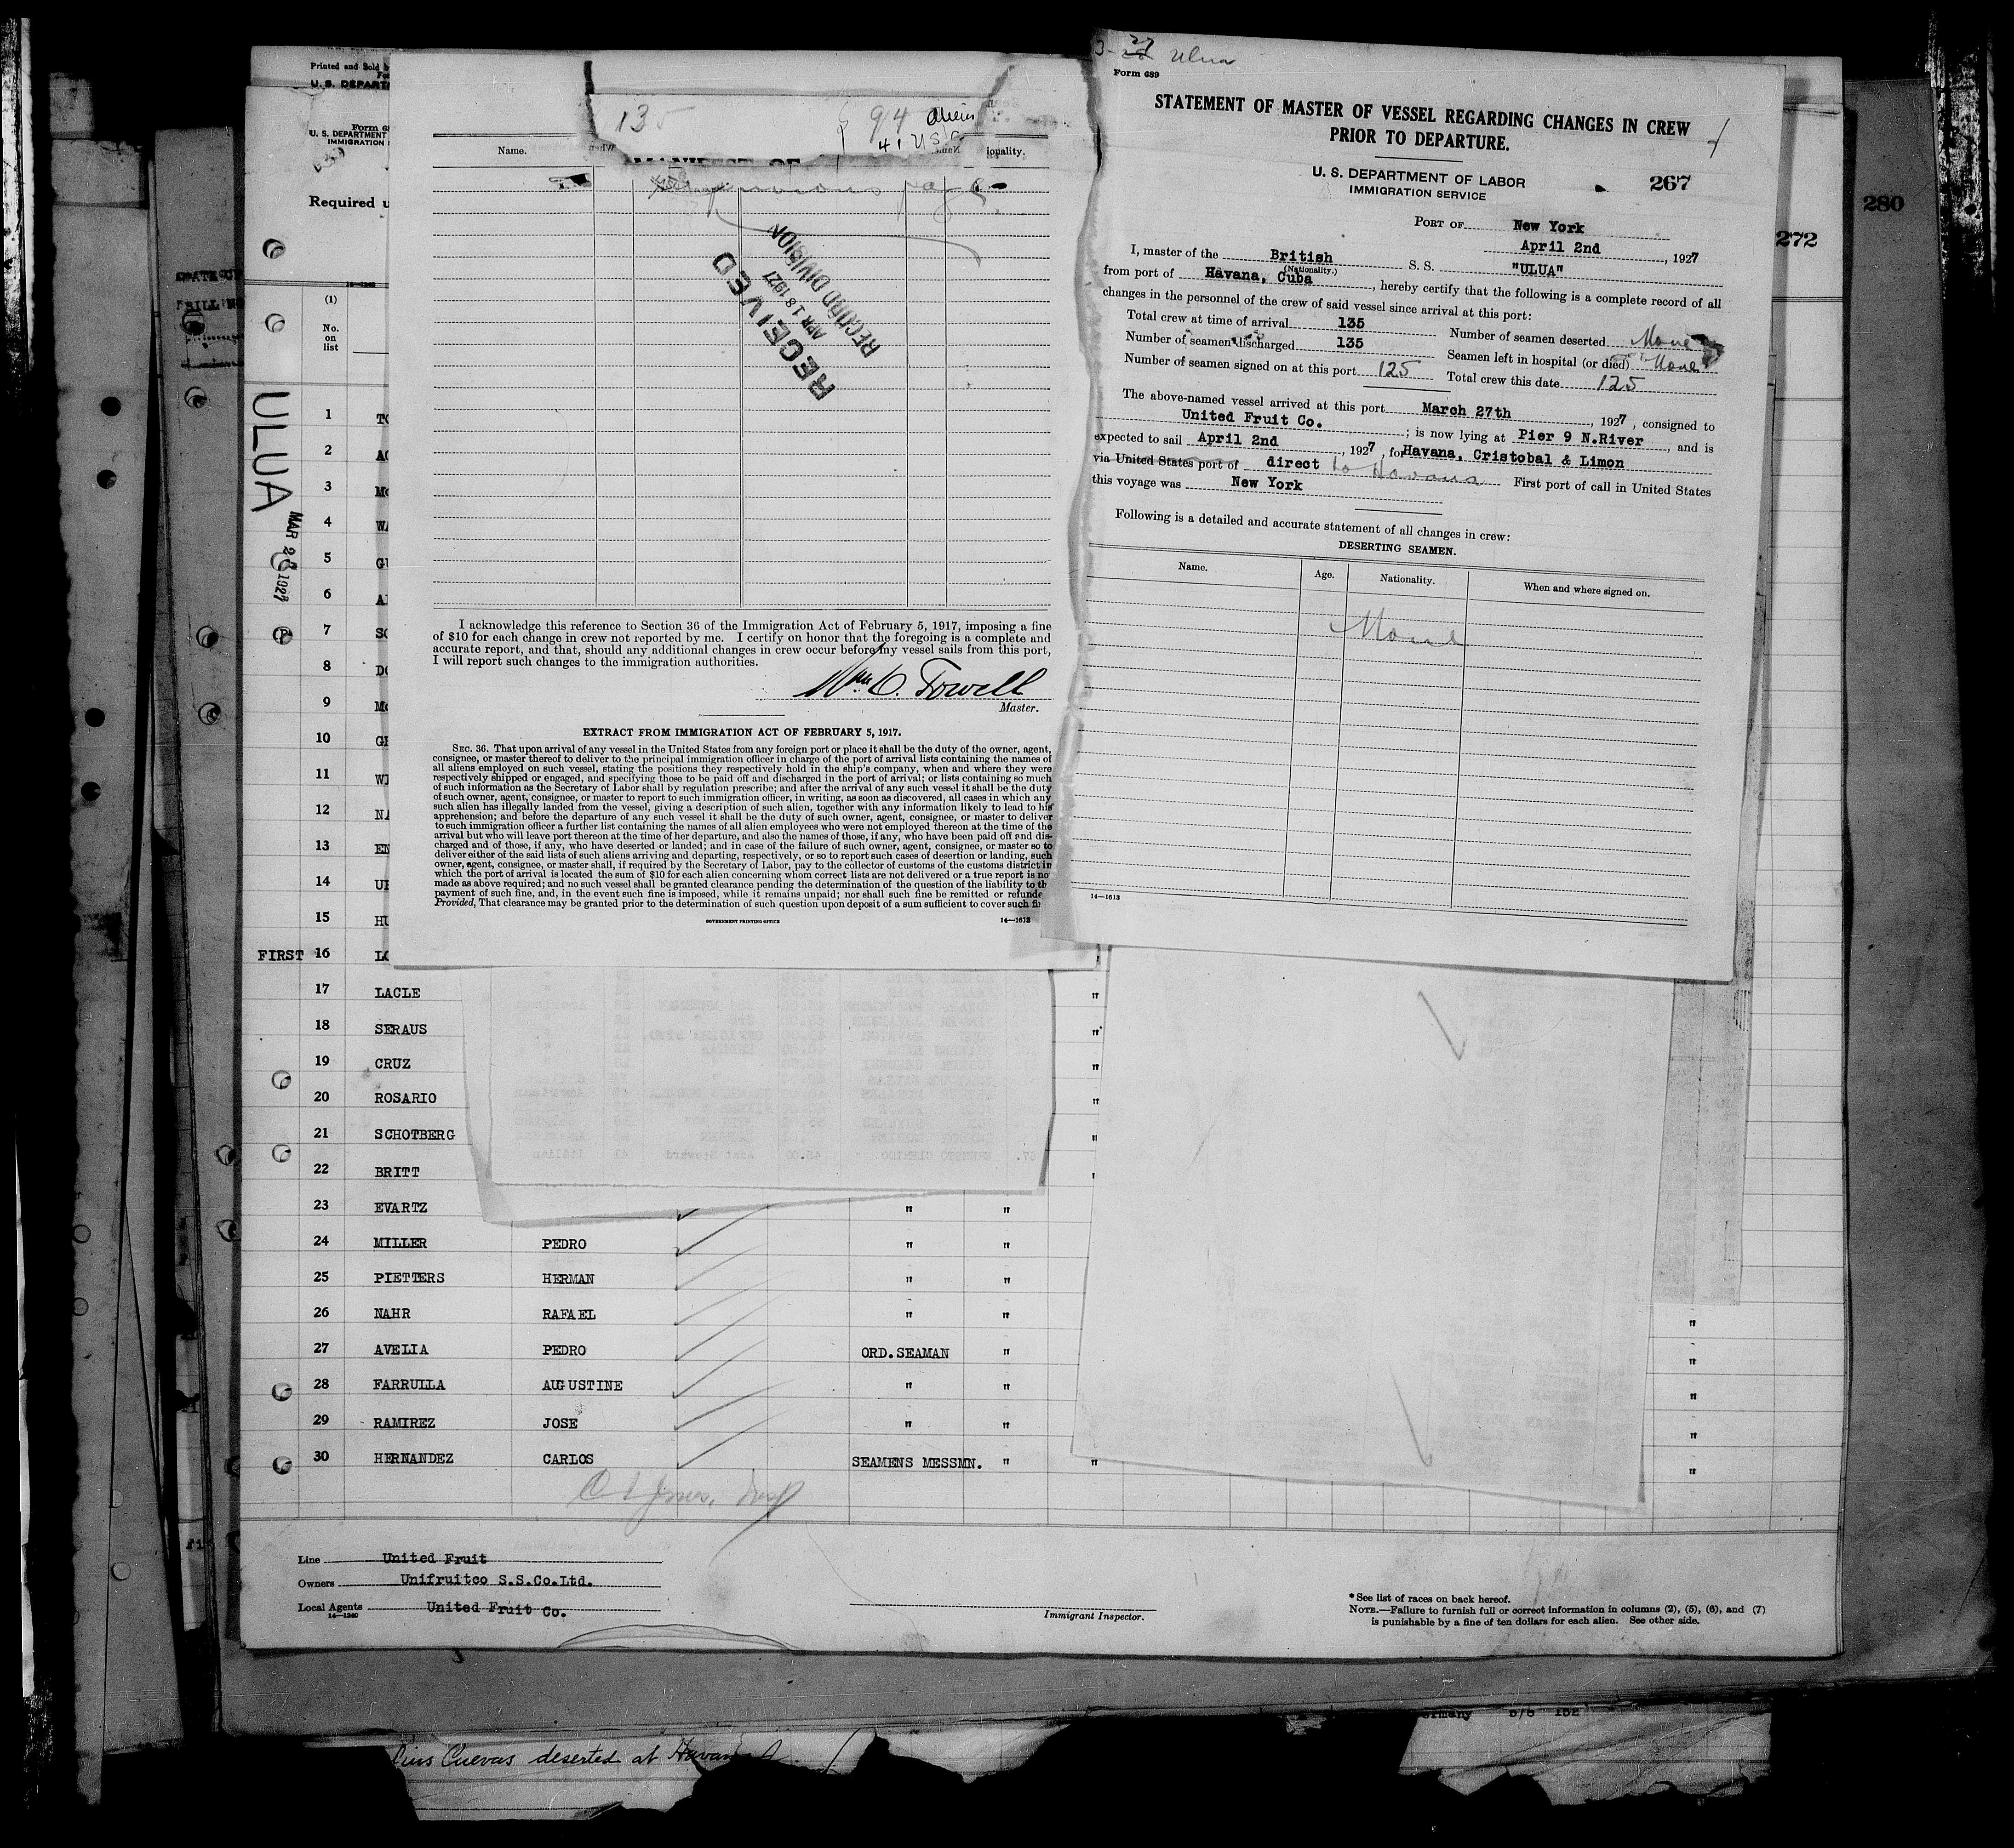 Printed and Sold b
U. S. DEPART
Form 68
U. S. DEPARTMENT
IMMIGRATION
Required u
14—1240
(1)
No.
on
list
ULUA
MAR 28 1927
1
2
3
4
5
6
7
8
9
10
11
12
13
14
15
FIRST 16
17 LACLE
18 SERAUS
19 CRUZ
20 ROSARIO
21 SCHOTBERG
22 BRITT
23 EVARTZ " "
24 MILLER PEDRO " "
25 PIETTERS HERMAN " "
26 NAHR RAFAEL " "
27 AVELIA PEDRO ORD.SEAMAN "
28 FARRULLA AUGUSTINE " "
29 RAMIREZ JOSE " "
30 HERNANDEZ CARLOS SEAMENS MESSMN. " "
Line United Fruit
Owners Unifruitco S.S.Co.Ltd.
Local Agents United Fruit Co.
14—1240
Immigrant Inspector.
* See list of races on back hereof.
NOTE.—Failure to furnish full or correct information in columns (2), (5), (6), and (7)
is punishable by a fine of ten dollars for each alien. See other side.
135 94 aliens
41 U S C
Name. ionality.
previous page
RECEIVED
APR 18 1927
RECORD DIVISION
I acknowledge this reference to Section 36 of the Immigration Act of February 5, 1917, imposing a fine
of $10 for each change in crew not reported by me. I certify on honor that the foregoing is a complete and
accurate report, and that, should any additional changes in crew occur before my vessel sails from this port,
I will report such changes to the immigration authorities.
Wm C. Towell
Master.
EXTRACT FROM IMMIGRATION ACT OF FEBRUARY 5, 1917.
SEC. 36. That upon arrival of any vessel in the United States from any foreign port or place it shall be the duty of the owner, agent,
consignee, or master thereof to deliver to the principal immigration officer in charge of the port of arrival lists containing the names of
all aliens employed on such vessel, stating the positions they respectively hold in the ship's company, when and where they were
respectively shipped or engaged, and specifying those to be paid off and discharged in the port of arrival; or lists containing so much
of such information as the Secretary of Labor shall by regulation prescribe; and after the arrival of any such vessel it shall be the duty
of such owner, agent, consignee, or master to report to such immigration officer, in writing, as soon as discovered, all cases in which any
such alien has illegally landed from the vessel, giving a description of such alien, together with any information likely to lead to his
apprehension; and before the departure of any such vessel it shall be the duty of such owner, agent, consignee, or master to deliver
to such immigration officer a further list containing the names of all alien employees who were not employed thereon at the time of the
arrival but who will leave port thereon at the time of her departure, and also the names of those, if any, who have been paid off and dis-
charged and of those, if any, who have deserted or landed; and in case of the failure of such owner, agent, consignee, or master so to
deliver either of the said lists of such aliens arriving and departing, respectively, or so to report such cases of desertion or landing, such
owner, agent, consignee, or master shall, if required by the Secretary of Labor, pay to the collector of customs of the customs district in
which the port of arrival is located the sum of $10 for each alien concerning whom correct lists are not delivered or a true report is no
made as above required; and no such vessel shall be granted clearance pending the determination of the question of the liability to th
payment of such fine, and, in the event such fine is imposed, while it remains unpaid; nor shall such fine be remitted or refunde
Provided, That clearance may be granted prior to the determination of such question upon deposit of a sum sufficient to cover such fi
GOVERNMENT PRINTING OFFICE 14—1613
27 Ulua
Form 689
STATEMENT OF MASTER OF VESSEL REGARDING CHANGES IN CREW
PRIOR TO DEPARTURE.
U. S. DEPARTMENT OF LABOR
IMMIGRATION SERVICE
267
PORT OF New York
April 2nd, 1927
I, master of the British S. S. "ULUA"
(Nationality.)
from port of Havana, Cuba, hereby certify that the following is a complete record of all
changes in the personnel of the crew of said vessel since arrival at this port:
Total crew at time of arrival 135 Number of seamen deserted None
Number of seamen discharged 135 Seamen left in hospital (or died) None
Number of seamen signed on at this port 125 Total crew this date 125
The above-named vessel arrived at this port March 27th, 1927, consigned to
United Fruit Co.; is now lying at Pier 9 N.River, and is
expected to sail April 2nd, 1927, for Havana, Cristobal & Limon
via United States port of direct to Havana First port of call in United States
this voyage was New York
Following is a detailed and accurate statement of all changes in crew:
DESERTING SEAMEN.
Name. Age. Nationality. When and where signed on.
None
14—1613
272
280
Cuevas deserted at Havana
ermany 5/6 152